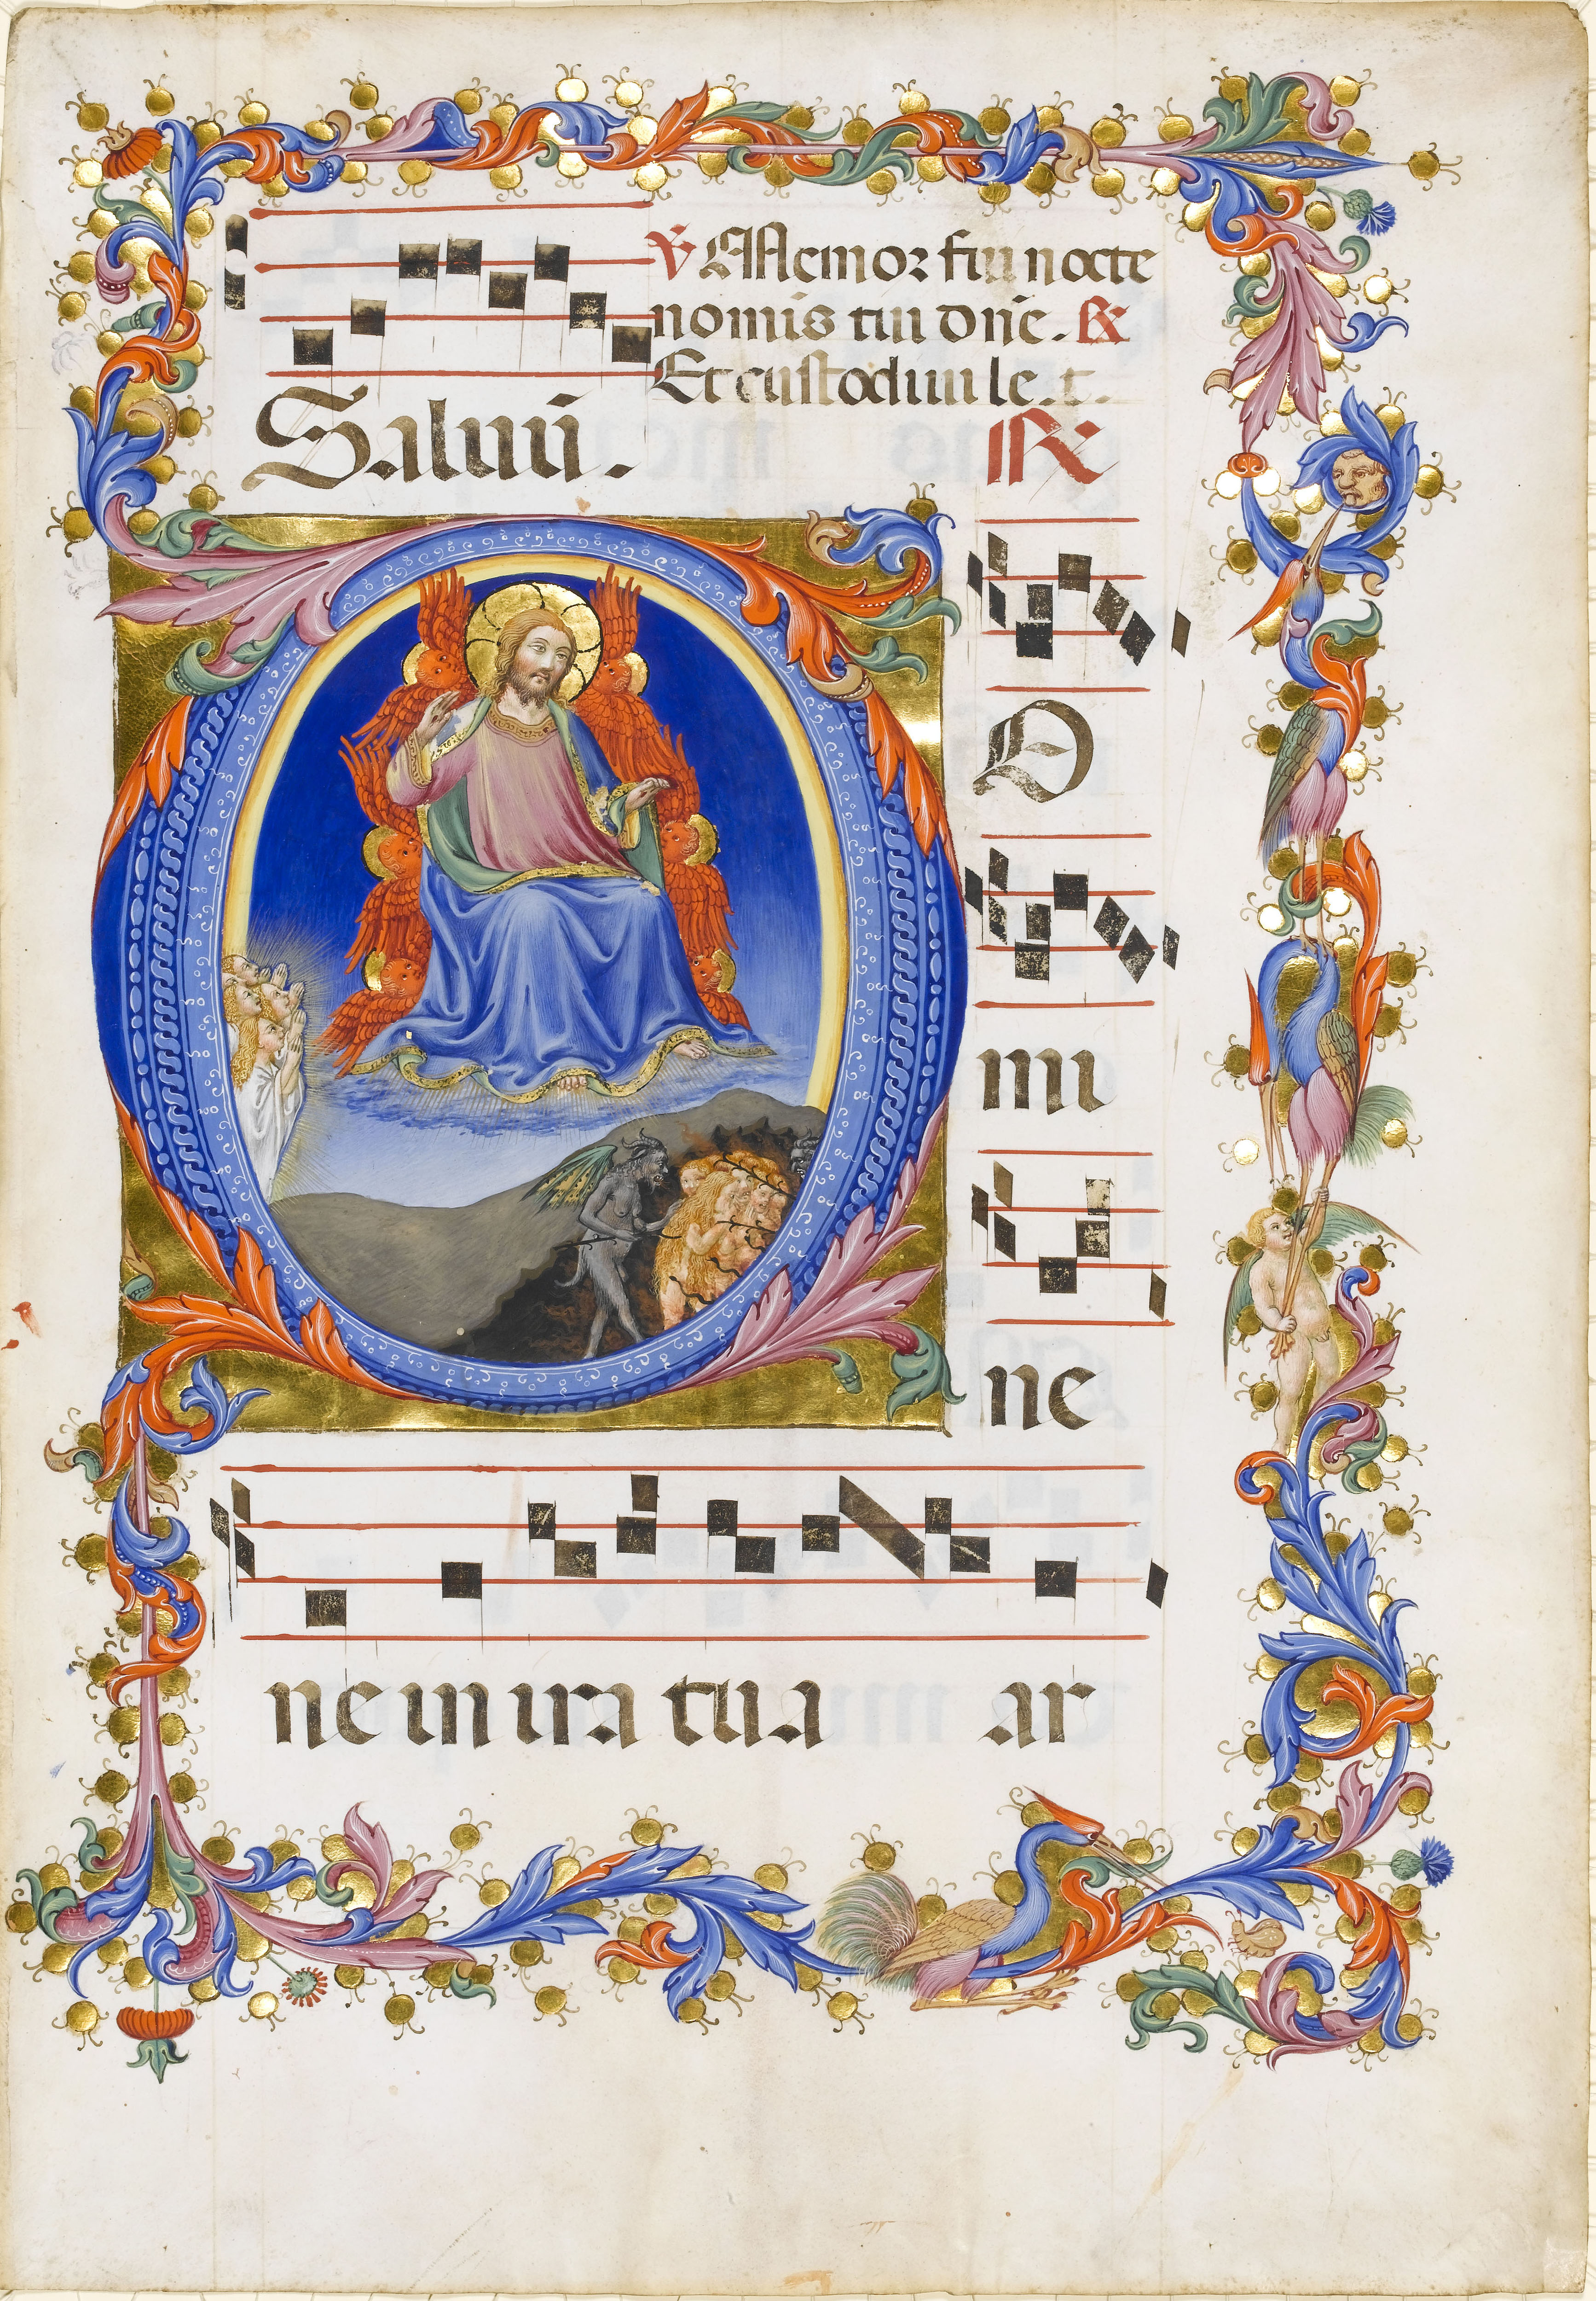 ℣ Memor fui nocte
nomīs tui dn̄e. ℟
Et custodiui le. t.
Saluū.
℟
D
mi
ne
ne in ira tua ar